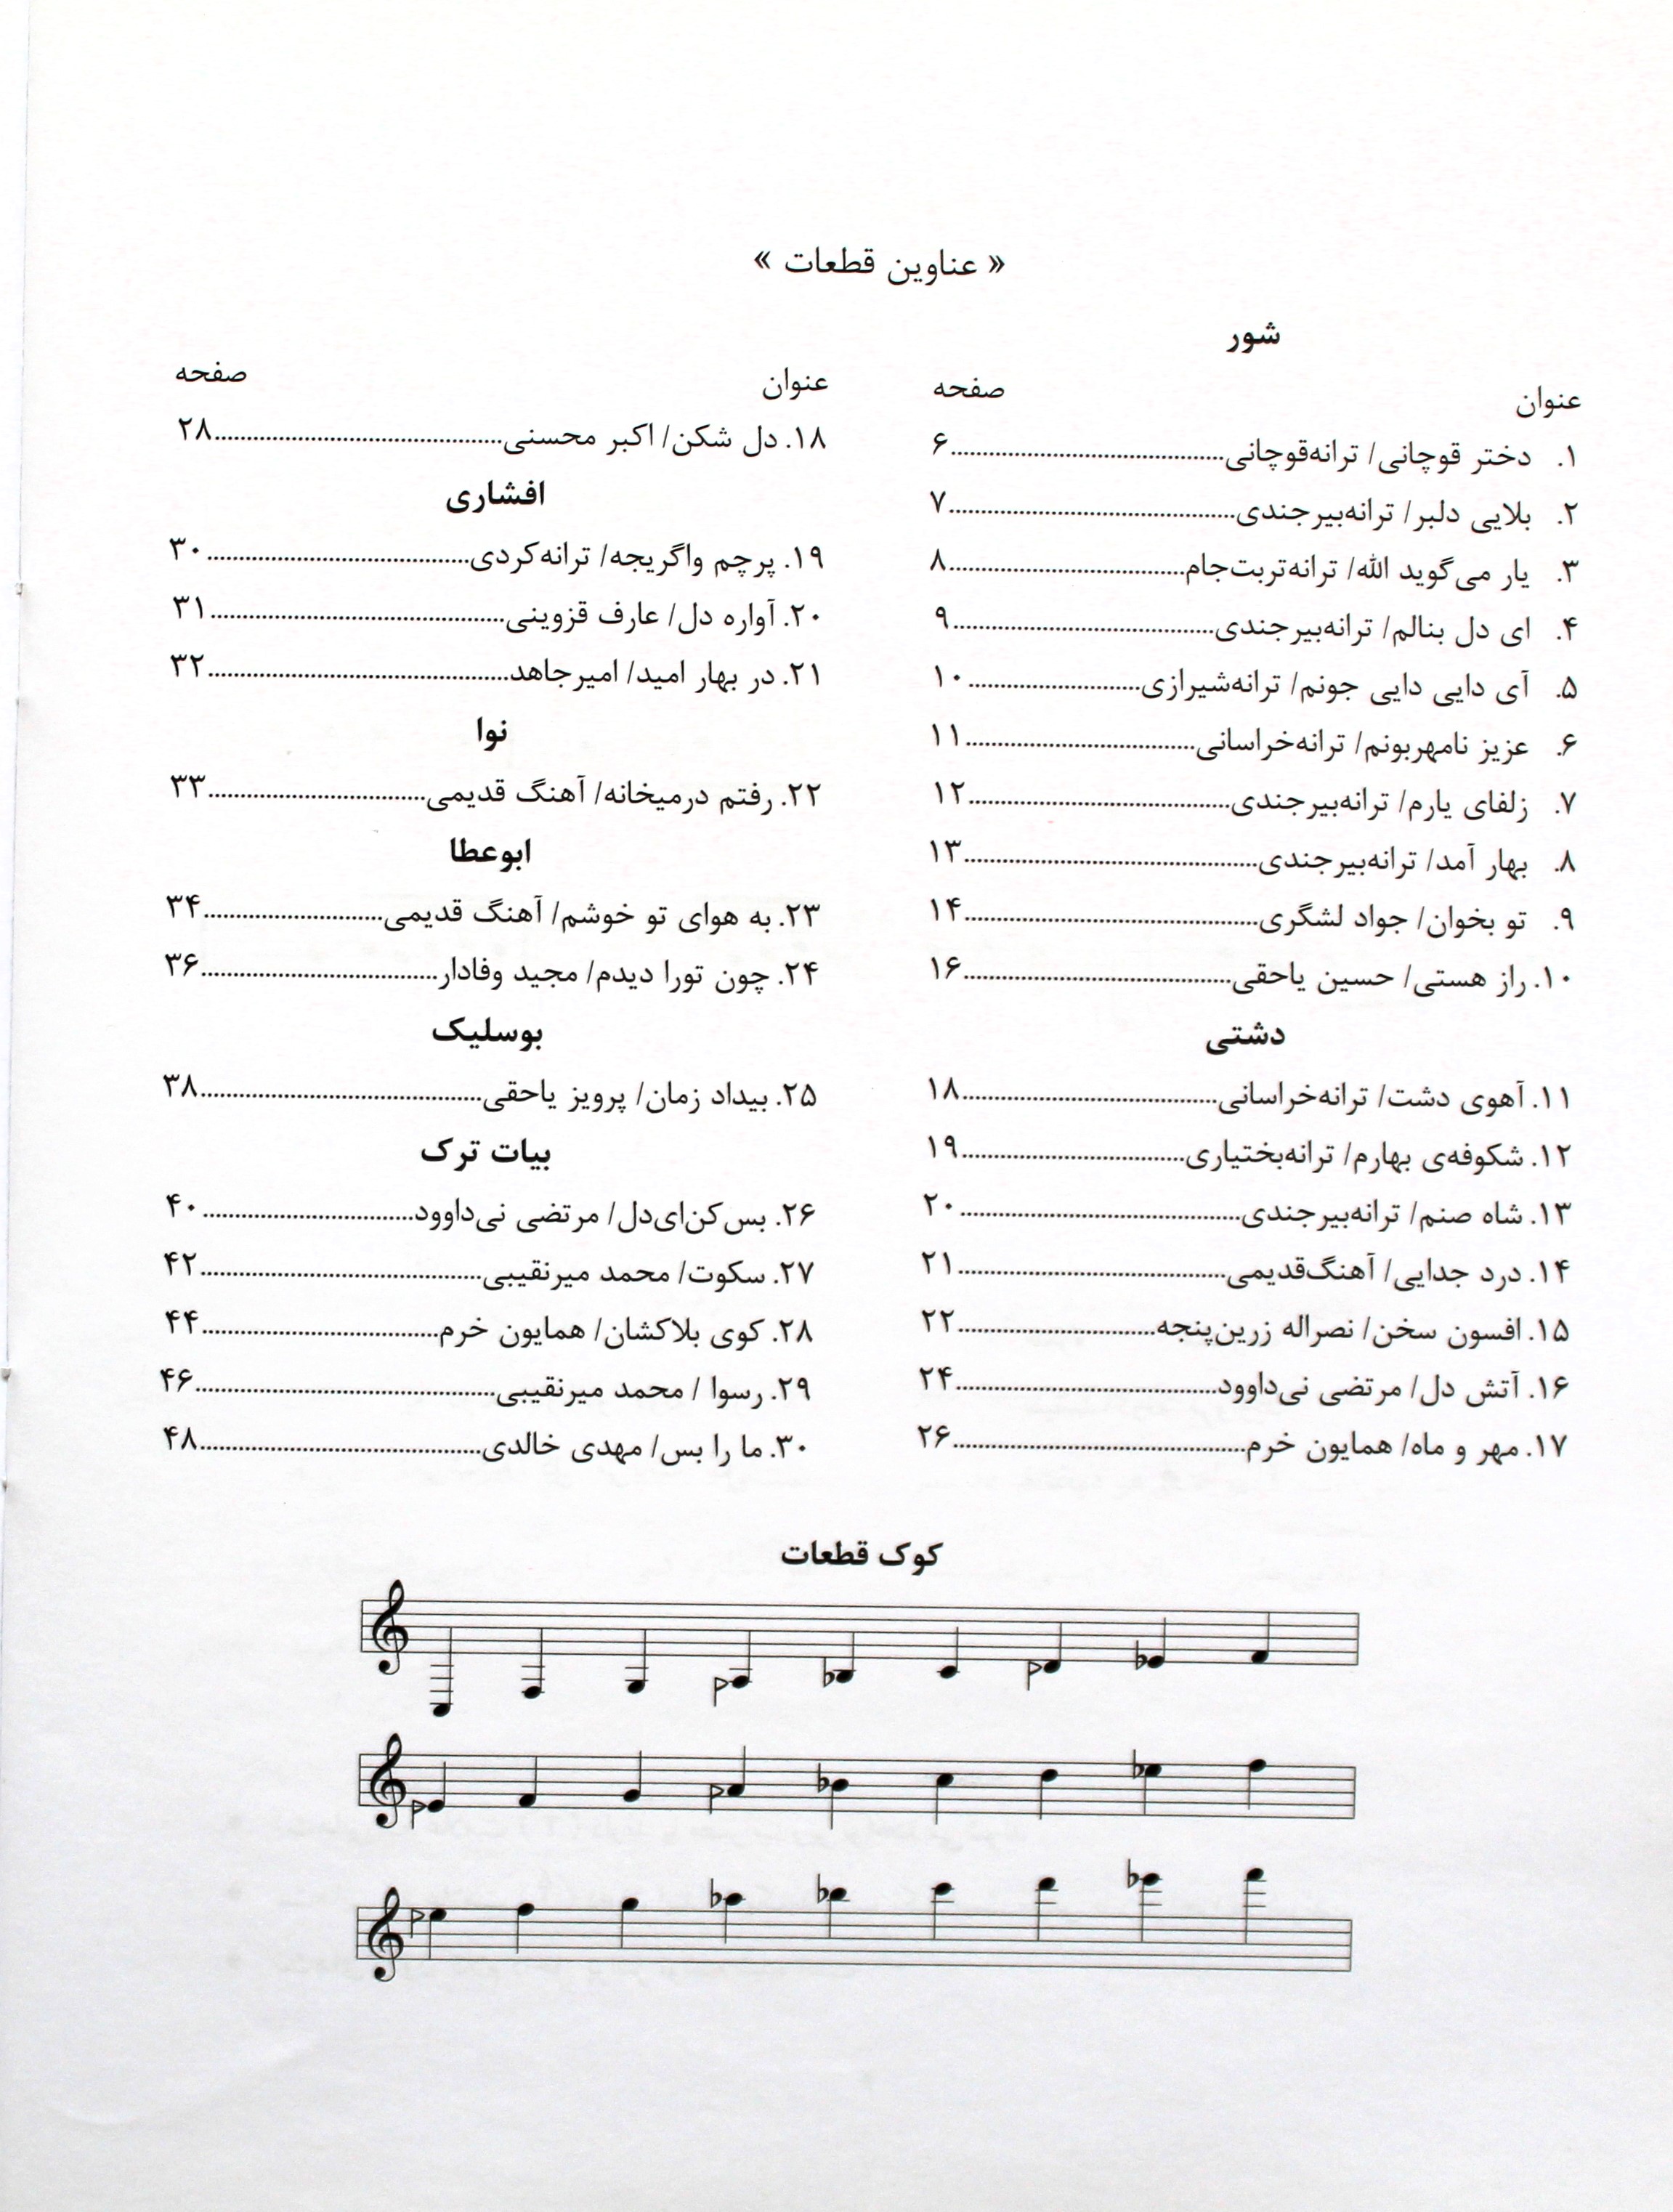 « عناوین قطعات »
شور
عنوان صفحه
۱. دختر قوچانی/ ترانه‌قوچانی..........۶
۲. بلایی دلبر/ ترانه‌بیرجندی..........۷
۳. یار می‌گوید الله/ ترانه‌تربت‌جام..........۸
۴. ای دل بنالم/ ترانه‌بیرجندی..........۹
۵. آی دایی دایی جونم/ ترانه‌شیرازی..........۱۰
۶. عزیز نامهربونم/ ترانه‌خراسانی..........۱۱
۷. زلفای یارم/ ترانه‌بیرجندی..........۱۲
۸. بهار آمد/ ترانه‌بیرجندی..........۱۳
۹. تو بخوان/ جواد لشگری..........۱۴
۱۰. راز هستی/ حسین یاحقی..........۱۶
دشتی
۱۱. آهوی دشت/ ترانه‌خراسانی..........۱۸
۱۲. شکوفه‌ی بهارم/ ترانه‌بختیاری..........۱۹
۱۳. شاه صنم/ ترانه‌بیرجندی..........۲۰
۱۴. درد جدایی/ آهنگ‌قدیمی..........۲۱
۱۵. افسون سخن/ نصراله زرین‌پنجه..........۲۲
۱۶. آتش دل/ مرتضی نی‌داوود..........۲۴
۱۷. مهر و ماه/ همایون خرم..........۲۶
عنوان صفحه
۱۸. دل شکن/ اکبر محسنی..........۲۸
افشاری
۱۹. پرچم واگریجه/ ترانه‌کردی..........۳۰
۲۰. آواره دل/ عارف قزوینی..........۳۱
۲۱. در بهار امید/ امیرجاهد..........۳۲
نوا
۲۲. رفتم درمیخانه/ آهنگ قدیمی..........۳۳
ابوعطا
۲۳. به هوای تو خوشم/ آهنگ قدیمی..........۳۴
۲۴. چون تورا دیدم/ مجید وفادار..........۳۶
بوسلیک
۲۵. بیداد زمان/ پرویز یاحقی..........۳۸
بیات ترک
۲۶. بس‌کن‌ای‌دل/ مرتضی نی‌داوود..........۴۰
۲۷. سکوت/ محمد میرنقیبی..........۴۲
۲۸. کوی بلاکشان/ همایون خرم..........۴۴
۲۹. رسوا / محمد میرنقیبی..........۴۶
۳۰. ما را بس/ مهدی خالدی..........۴۸
کوک قطعات